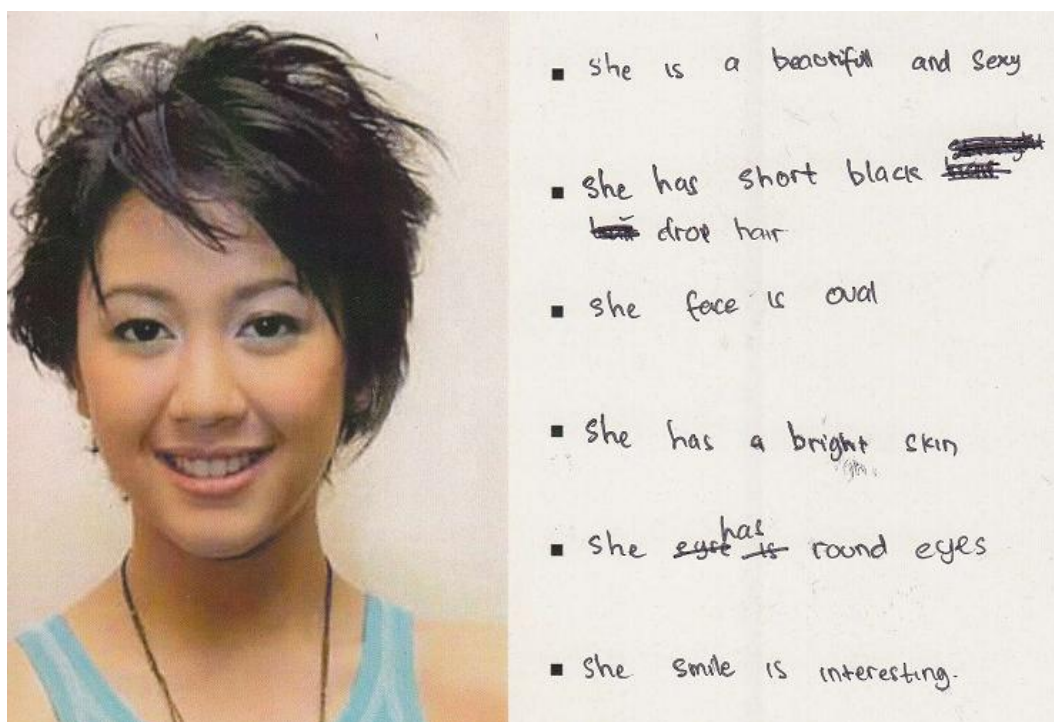 ▪ She is a beautifull and sexy
▪ She has short black
drop hair
▪ She face is oval
▪ She has a bright skin
▪ She has round eyes
▪ She smile is interesting.